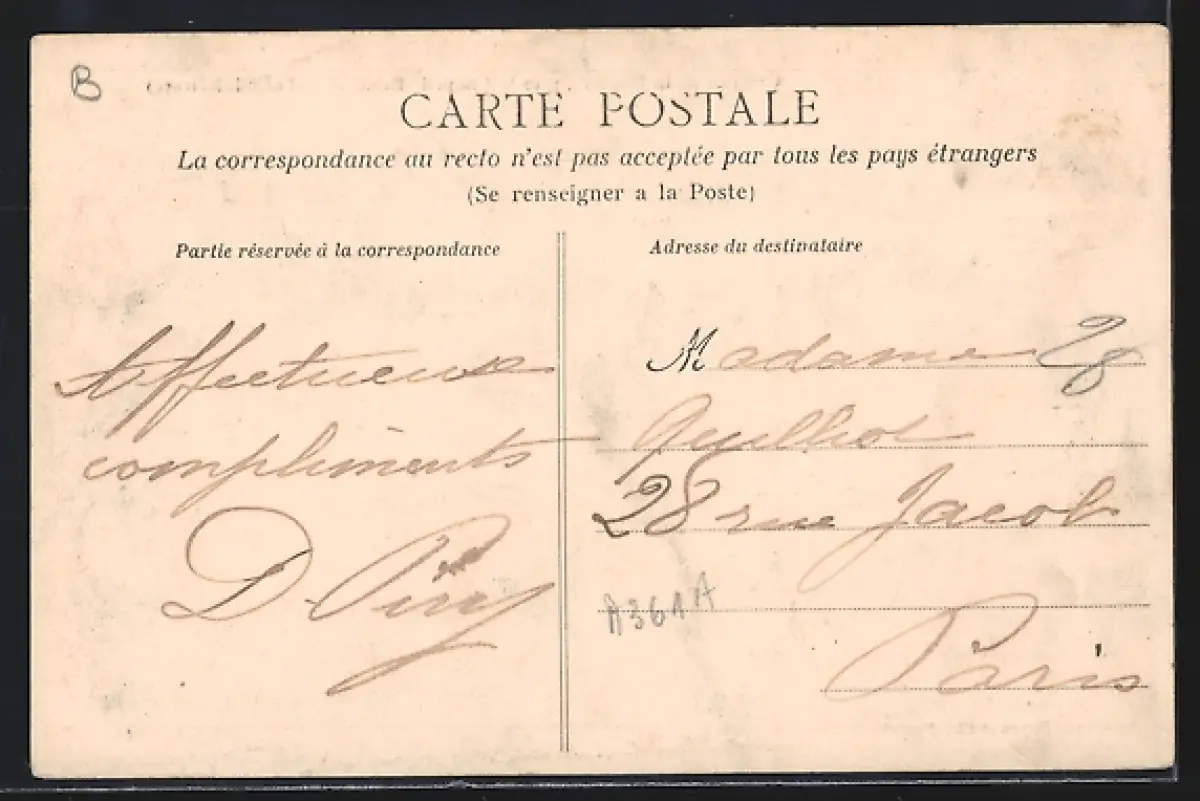 B
CARTE POSTALE
La correspondance au recto n'est pas acceptée par tous les pays étrangers
(Se renseigner a la Poste)
Partie réservée à la correspondance
Affectueux
compliments
D. Piry
Adresse du destinataire
Madame 28
Quilhot
28 rue Jacob
A361A
Paris